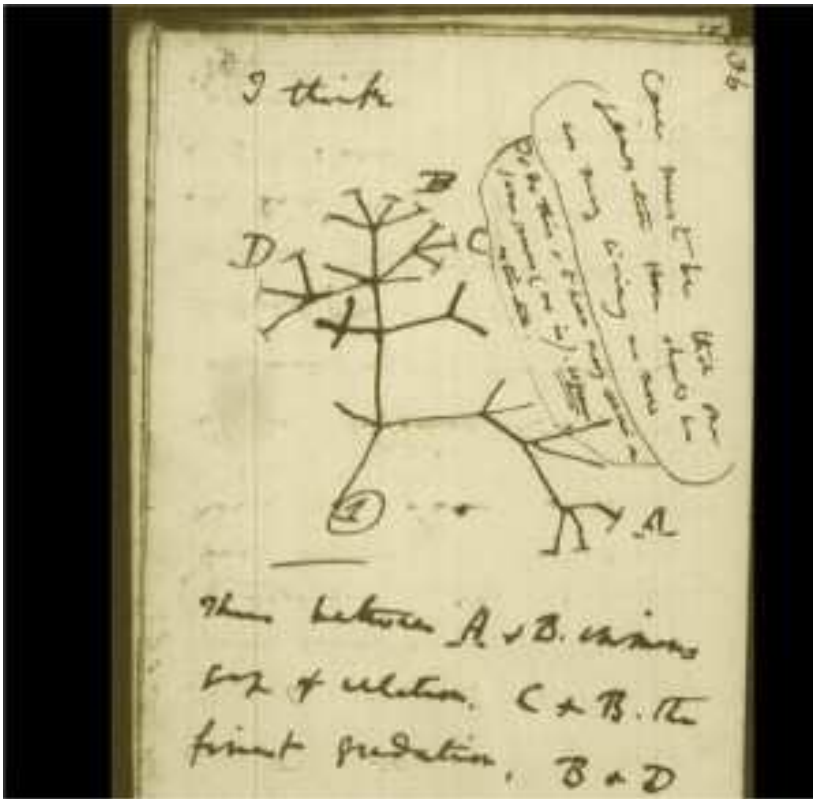 36
I think
Case must be that one
generation then should be
as many living as now
To do this & to have many species in
same genus (as is). requires
extinction
B
D
C
1
A
Thus between A & B. immense
gap of relation. C & B. the
finest gradation, B & D